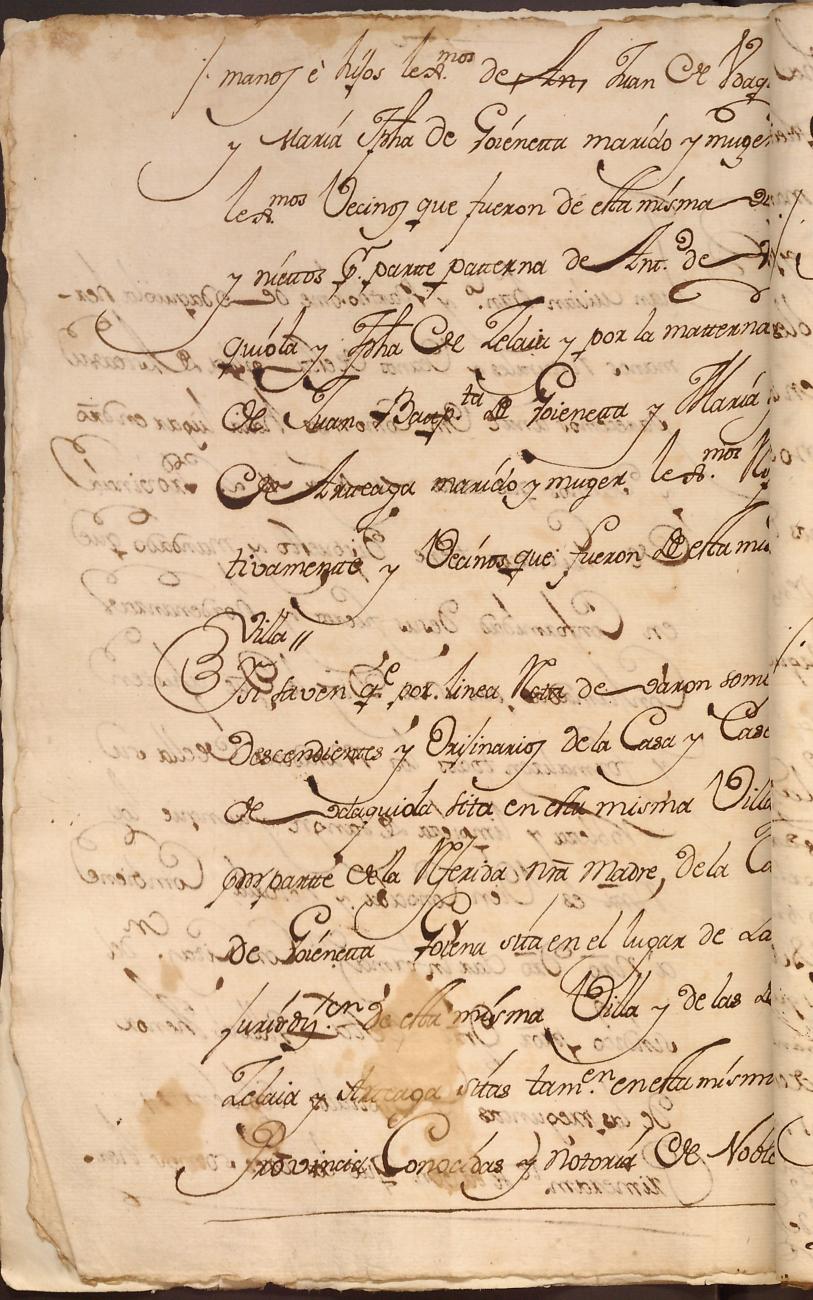 manos è hijos lexmos de Juan de Vdaq
y Maria Jpha de Goienetta marido y muger
lexmos Vecinos que fueron de esta misma
y niettos pr. parte patterna de Ant. de
quiola y Jpha de Zelaia y por la matterna
de Juan Baupta de Goienetta y Maria
de Artteaga marido y muger lexmos
tivamente y Vecinos que fueron de esta mis
Villa
3 Si saven qe por linea Rcta de varon somo
Descendienttes y Orijinarios de la Casa y Case
de Vdaquiola sita en esta misma Villa
por partte de la Rferida nrã Madre, de la Ca
de Goienetta Goiena sita en el lugar de La
juridizn de esta misma Villa y de las de
Zelaia y Artteaga sitas tamen en esta misma
Provincia Conocidas y Notorias de Noble